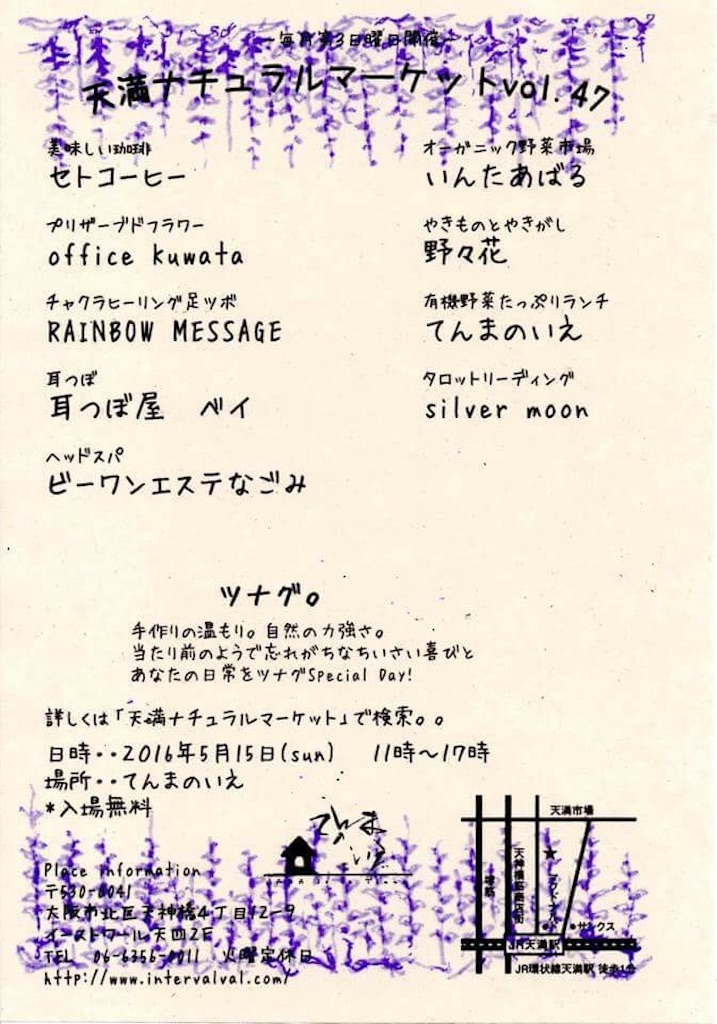 毎月第3日曜日開催
天満ナチュラルマーケットvol.47
美味しい珈琲
セトコーヒー
プリザーブドフラワー
office kuwata
チャクラヒーリング足ツボ
RAINBOW MESSAGE
耳つぼ
耳つぼ屋 ベイ
ヘッドスパ
ビーワンエステなごみ
オーガニック野菜市場
いんたあばる
やきものとやきがし
野々花
有機野菜たっぷりランチ
てんまのいえ
タロットリーディング
silver moon
ツナグ。
手作りの温もり。自然の力強さ。
当たり前のようで忘れがちなちいさい喜びと
あなたの日常をツナグSpecial Day!
詳しくは「天満ナチュラルマーケット」で検索。。
日時・・2016年5月15日(sun) 11時～17時
場所・・てんまのいえ
*入場無料
Place information
〒530-0041
大阪市北区天神橋4丁目12-9
イーストワール天四2F
TEL 06-6356-0011 火曜定休日
http://www.intervalval.com/
てんま
の
いえ
天満市場
天神橋筋商店街
★
•サンクス
JR天満駅
JR環状線天満駅 徒歩1分